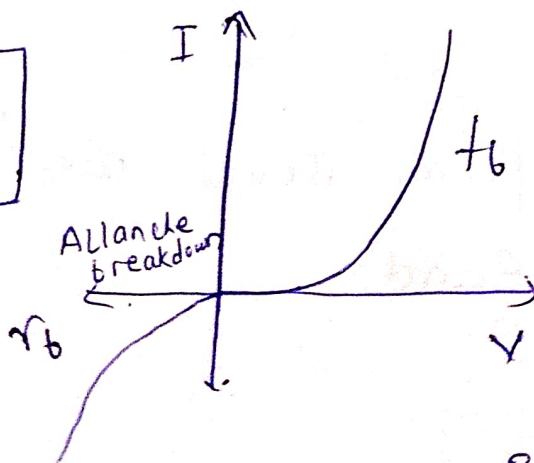 I
fb
Allanche
breakdown
rb
V